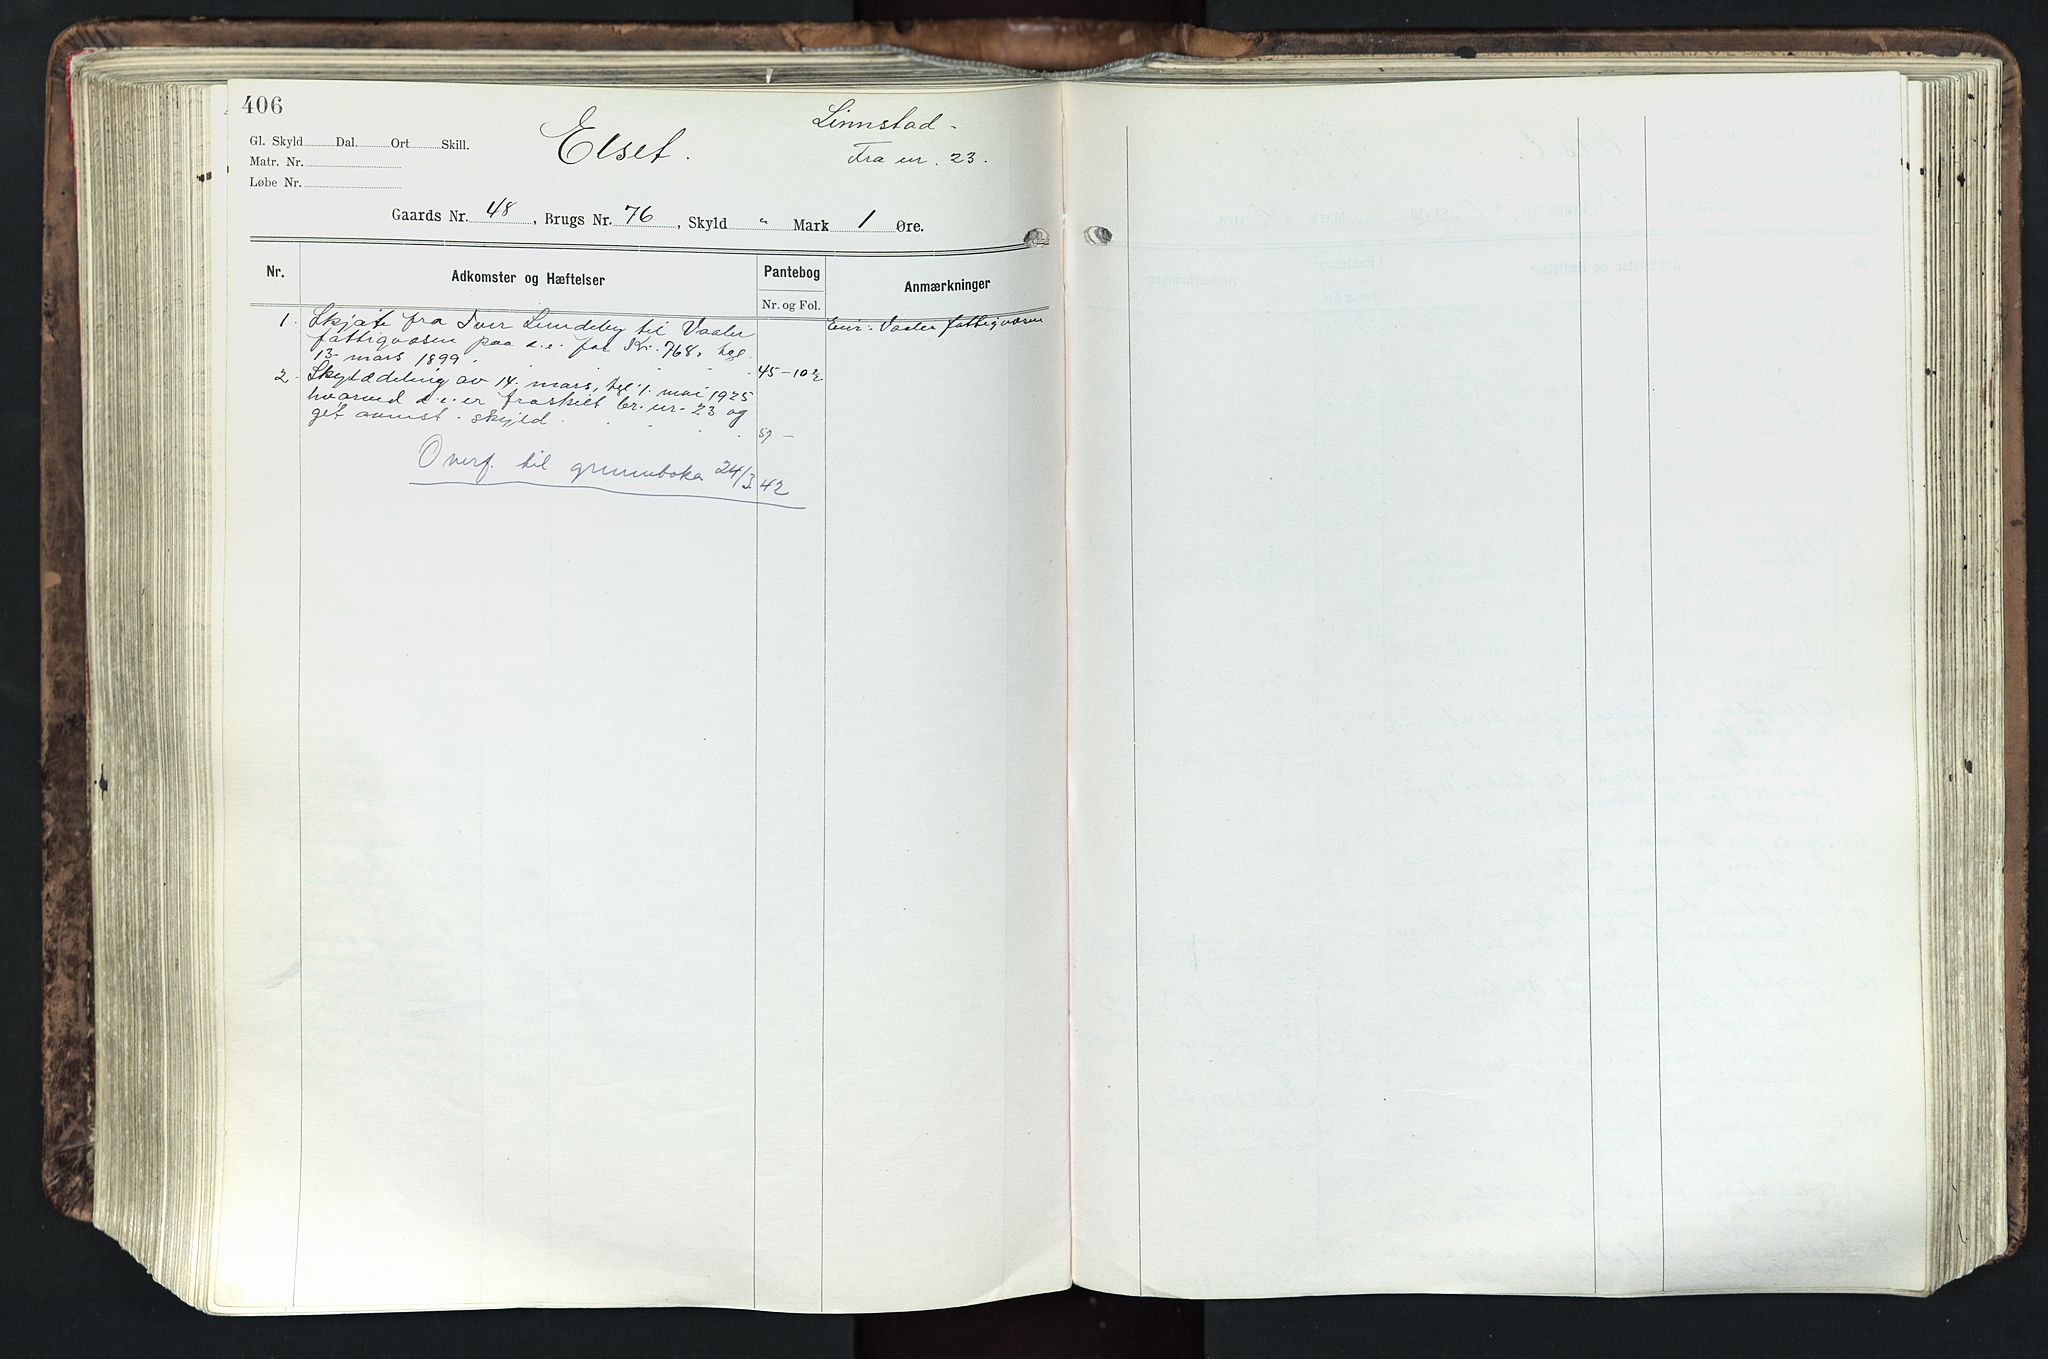 406
Gl. Skyld Dal. Ort Skill.
Matr. Nr.
Løbe Nr.
Elset.
Linnstad -
Fra nr. 23.
Gaards Nr. 48, Brugs Nr. 76, Skyld " Mark 1 Øre.
Nr.
Adkomster og Hæftelser
Pantebog
Nr. og Fol.
Anmærkninger
1. Skjøte fra Iver Lundeby til Vaaler
fattigvæsen paa d.e. for Kr. 768, tgl.
13 mars 1899. 45-102
Eier: Vaaler fattigvæsen
2. Skylddeling av 14. mars, tgl. 1. mai 1925
hvorved d.e. er fraskilt br. nr. 23 og
git anmst. skyld. 57 -
Overf. til grunnboka 24/3 42